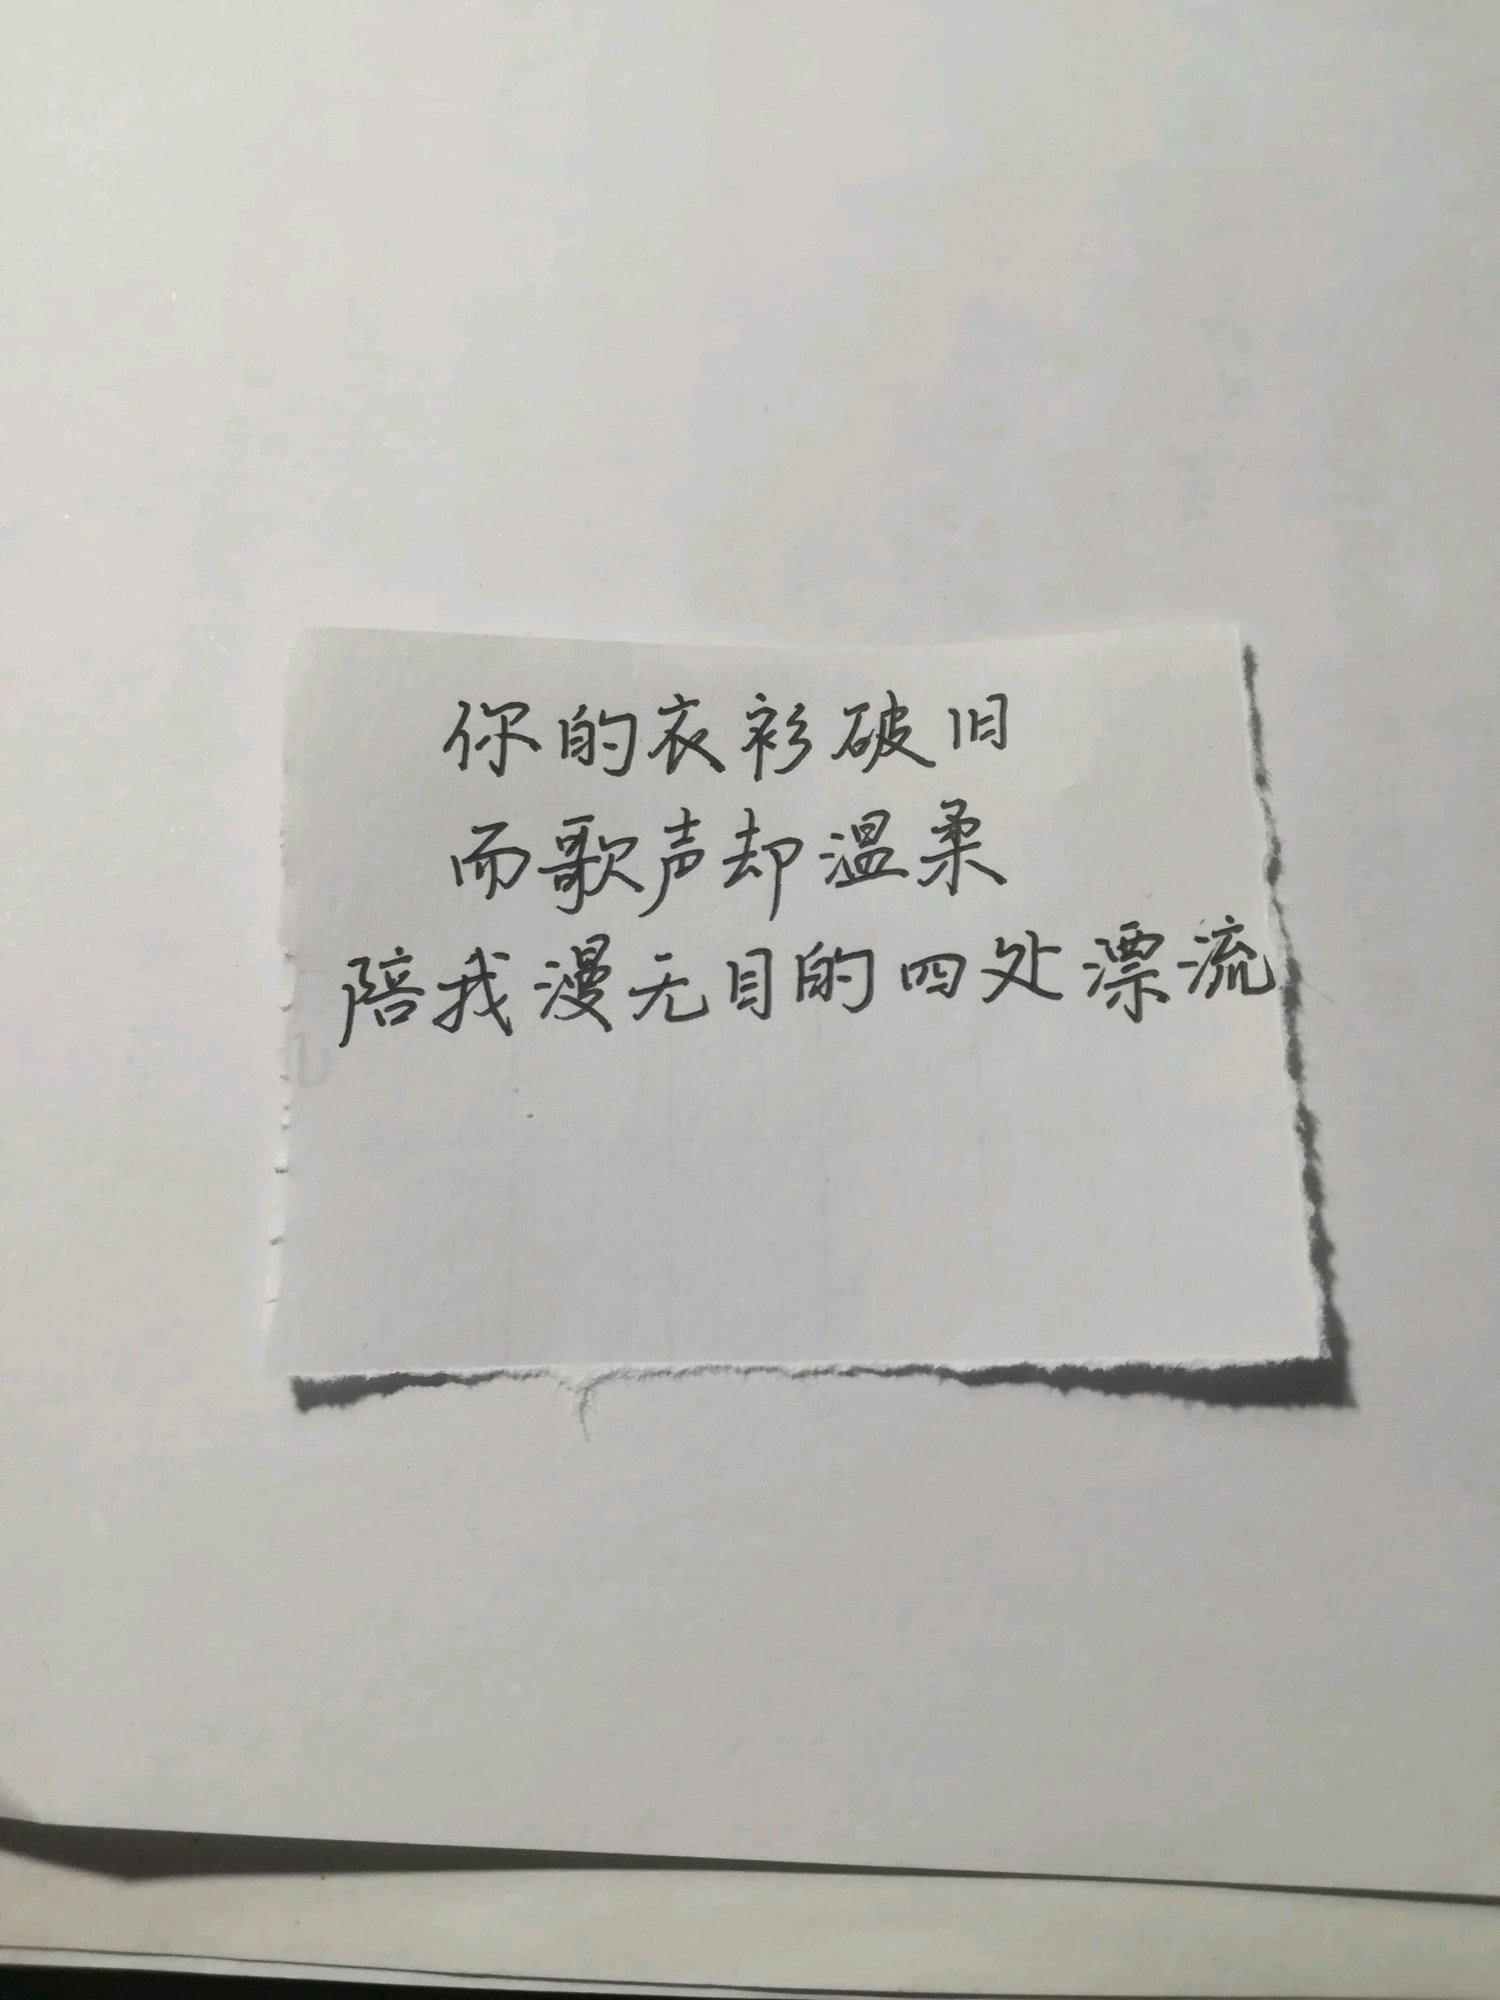 你的衣衫破旧
而歌声却温柔
陪我漫无目的四处漂流